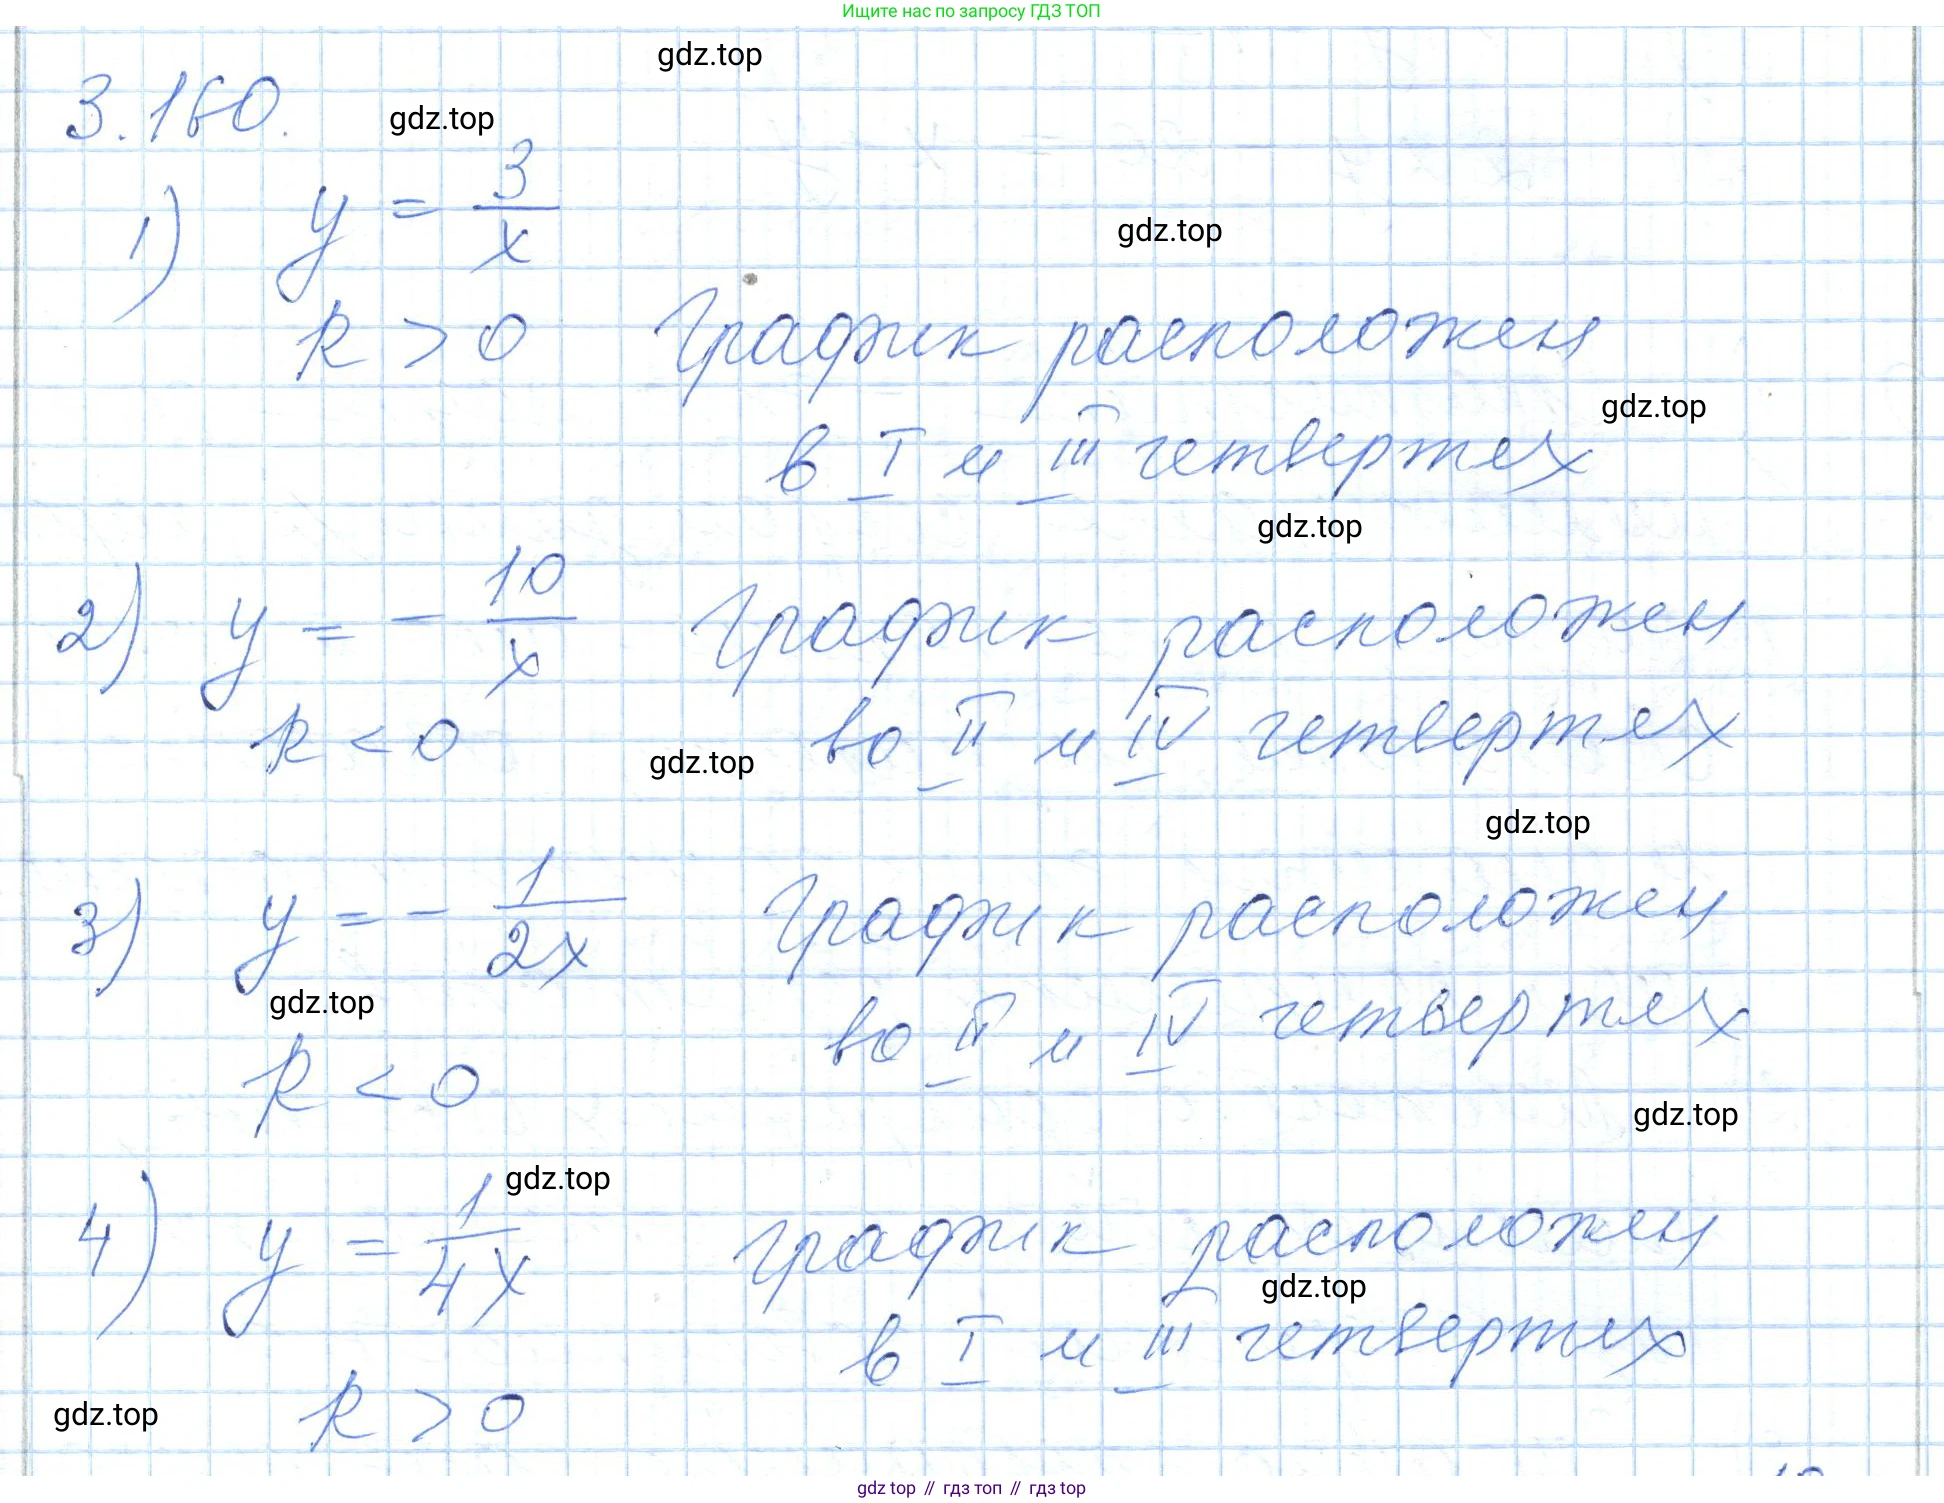 Ищите нас по запросу ГДЗ ТОП
gdz.top
3.160.
gdz.top
1) y = 3/x
gdz.top
k > 0 График расположен
gdz.top
в I и III четвертях
gdz.top
2) y = - 10/x График расположен
k < 0 во II и IV четвертях
gdz.top
gdz.top
3) y = - 1/2x График расположен
gdz.top
во II и IV четвертях
k < 0
gdz.top
gdz.top
4) y = 1/4x График расположен
gdz.top
в I и III четвертях
k > 0
gdz.top
gdz top // гдз топ // гдз top